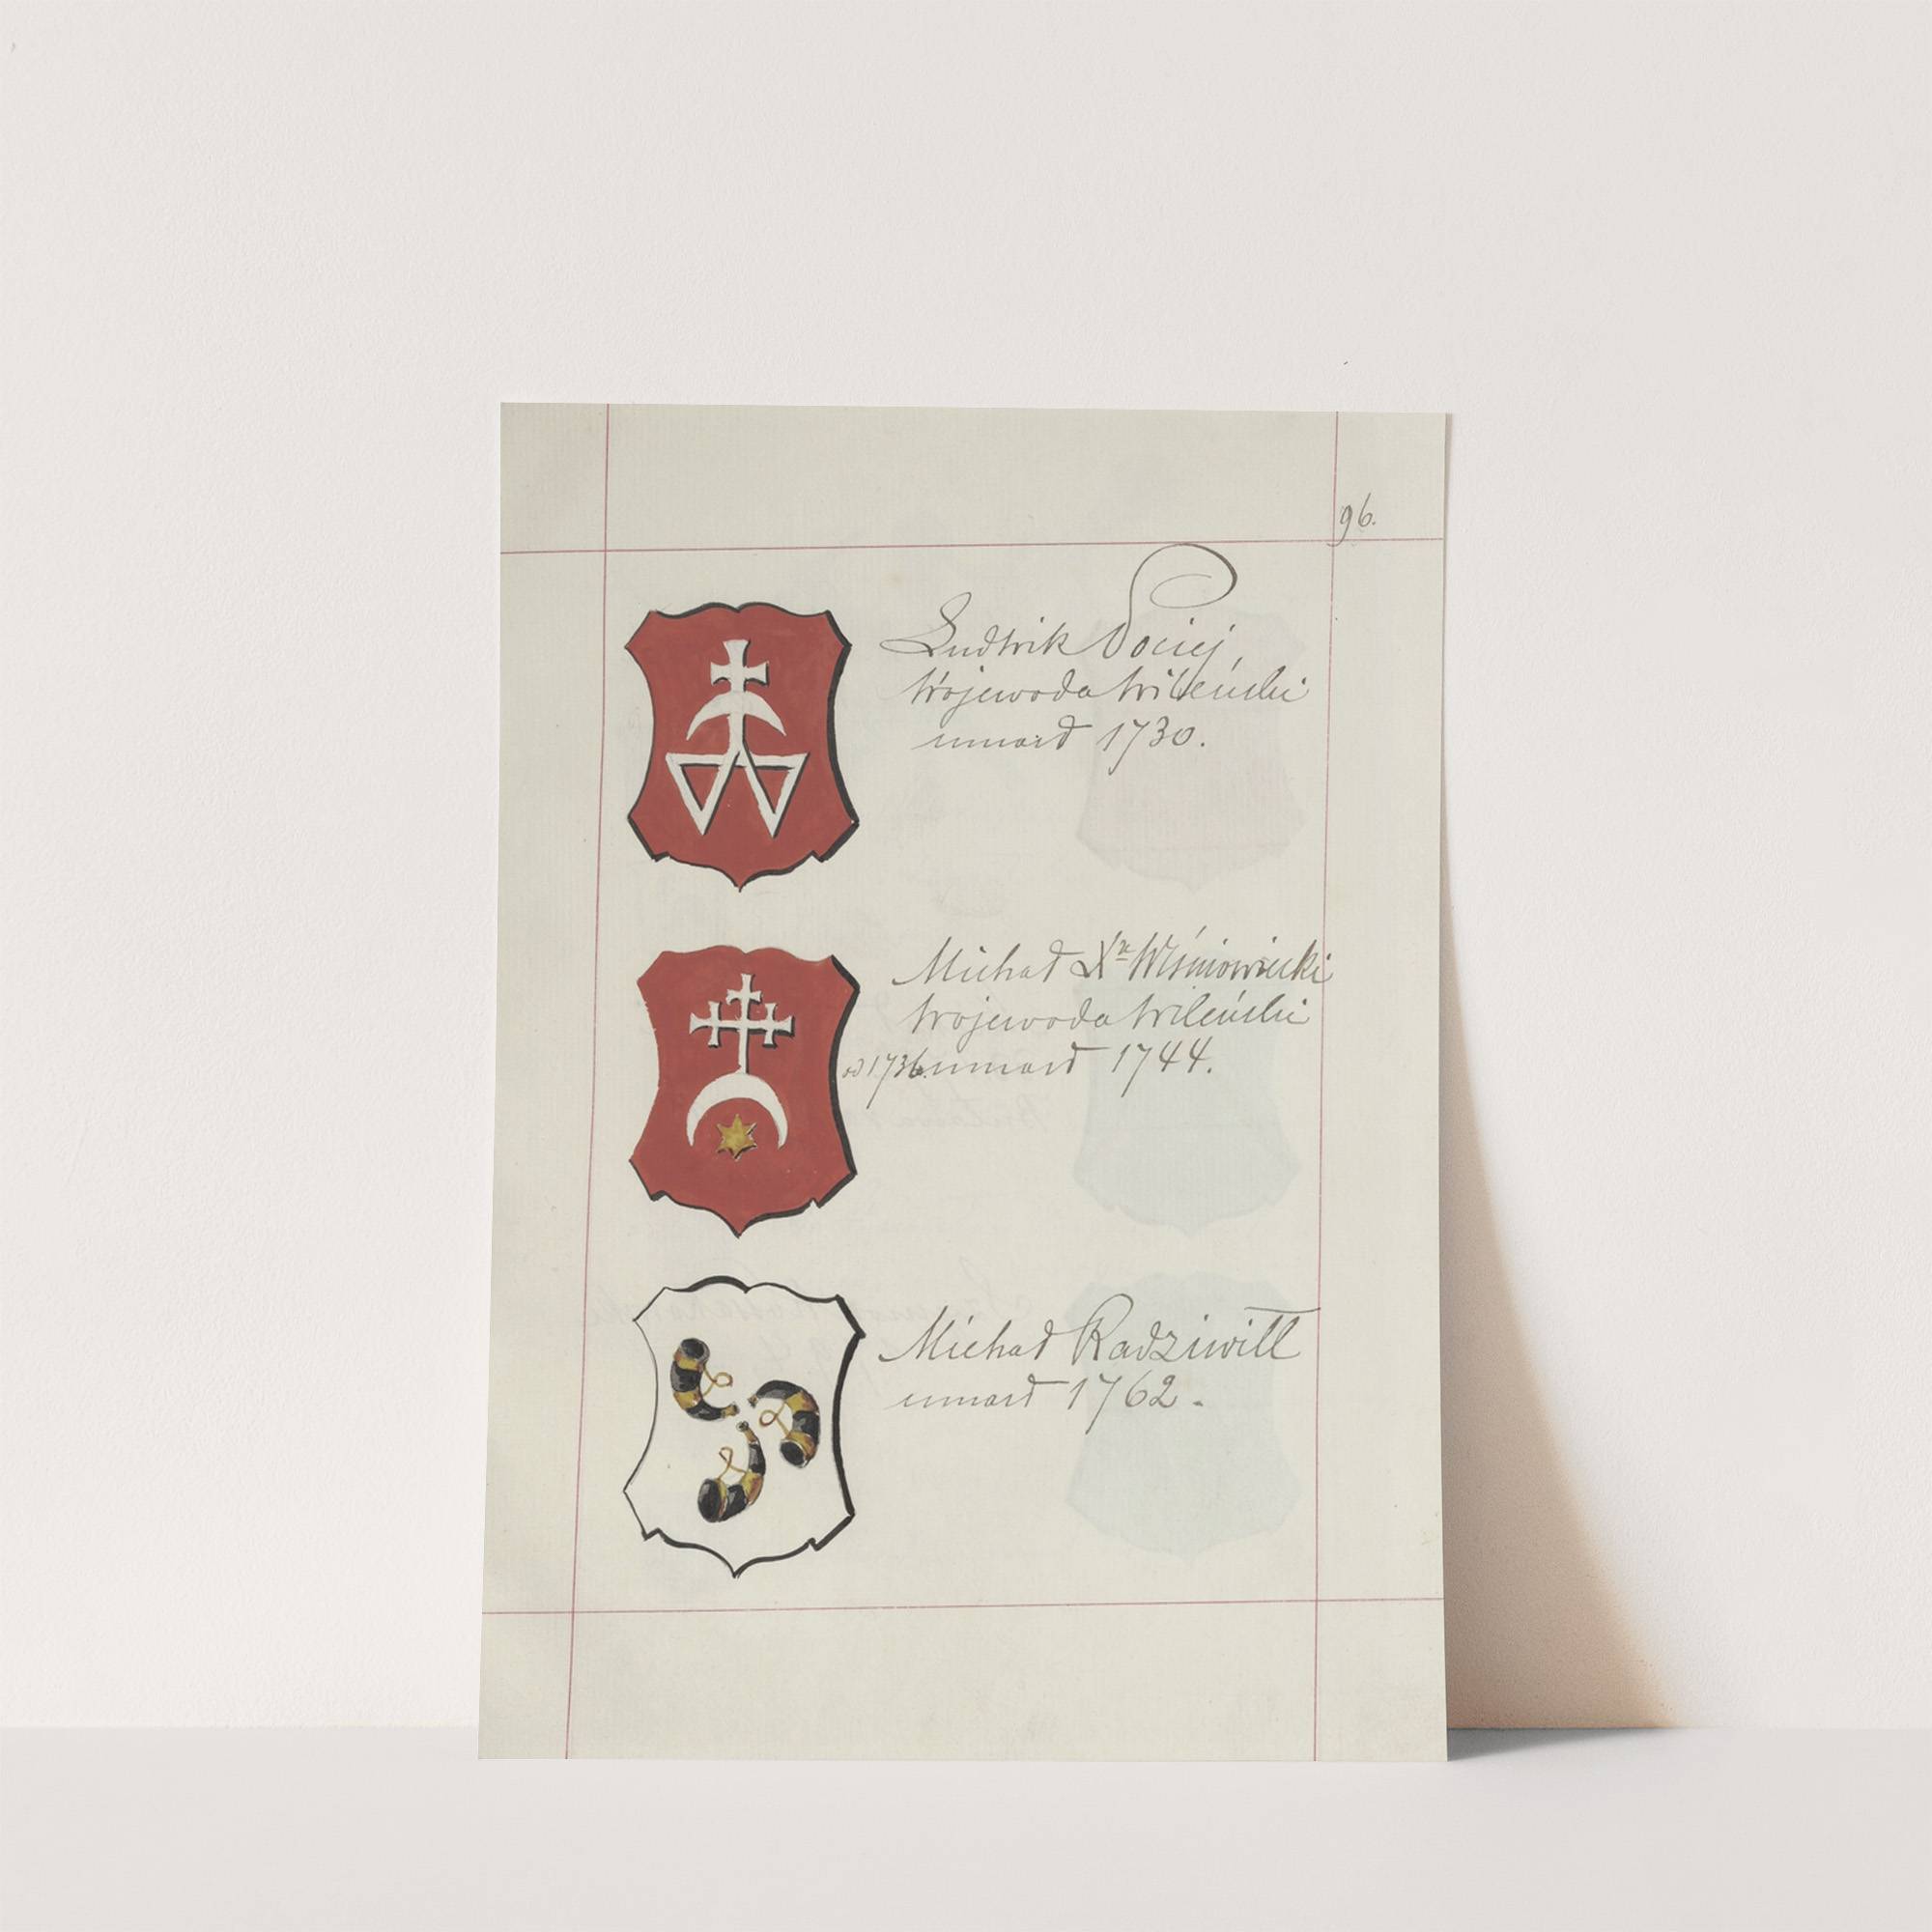 96.
Ludwik Pociej,
Wojewoda wileński
umarł 1730.
Michał Xże Wiśniowiecki
Wojewoda wileński
od 1736. umarł 1744.
Michał Radziwiłł
umarł 1762.